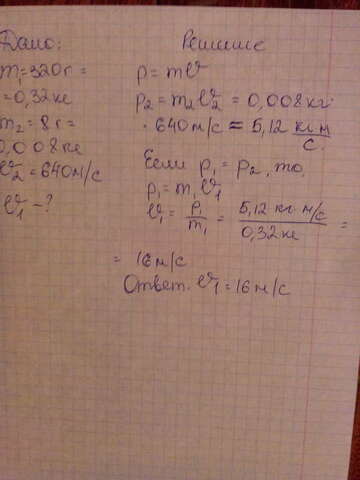 Дано:
m₁=320г=
=0,32кг
m₂=8г=
0,008кг
v₂=640м/с
v₁-?
Решение
p=mv
p₂=m₂v₂=0,008кг·
·640м/с=5,12 кг·м/с
Если p₁=p₂, то
p₁=m₁v₁
v₁=p₁/m₁=5,12 кг·м/с/0,32кг=
=16м/с
Ответ. v₁=16м/с